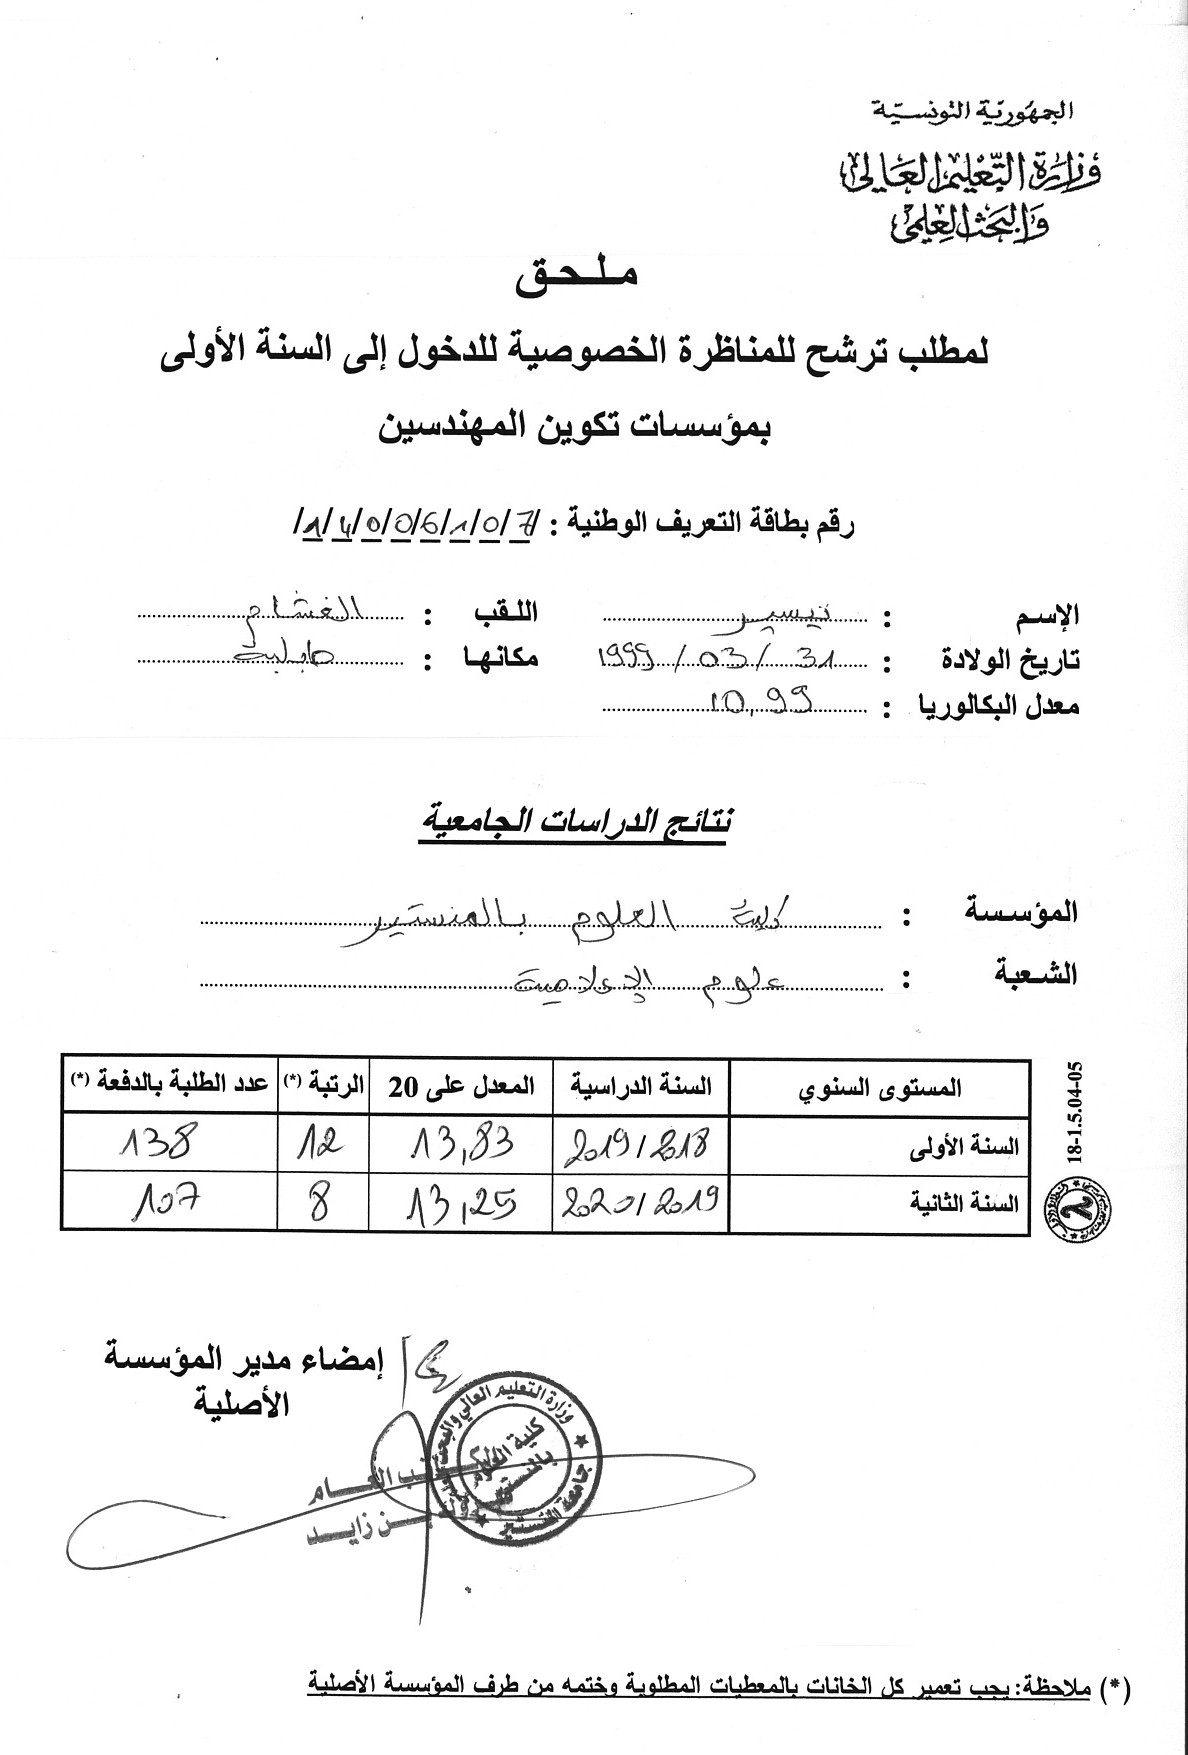 الجمهورية التونسية
وزارة التعليم العالي
والبحث العلمي
ملحق
لمطلب ترشح للمناظرة الخصوصية للدخول إلى السنة الأولى
بمؤسسات تكوين المهندسين
رقم بطاقة التعريف الوطنية : /1/4/0/0/6/1/0/7/
الإسم : تيسير اللقب : الغشام
تاريخ الولادة : 31/03/1999 مكانها :
معدل البكالوريا : 10,99
نتائج الدراسات الجامعية
المؤسسة : كلية العلوم بالمنستير
الشعبة : علوم الإعلامية
المستوى السنوي السنة الدراسية المعدل على 20 الرتبة (*) عدد الطلبة بالدفعة (*)
السنة الأولى 2018/2019 13,83 12 138
السنة الثانية 2019/2020 13,25 8 107
18-1.5.04-05
إمضاء مدير المؤسسة
الأصلية
وزارة التعليم العالي والبحث العلمي
كلية العلوم
بالمنستير
جامعة المنستير
الكاتب العام
بن زايد
(*) ملاحظة: يجب تعمير كل الخانات بالمعطيات المطلوبة وختمه من طرف المؤسسة الأصلية